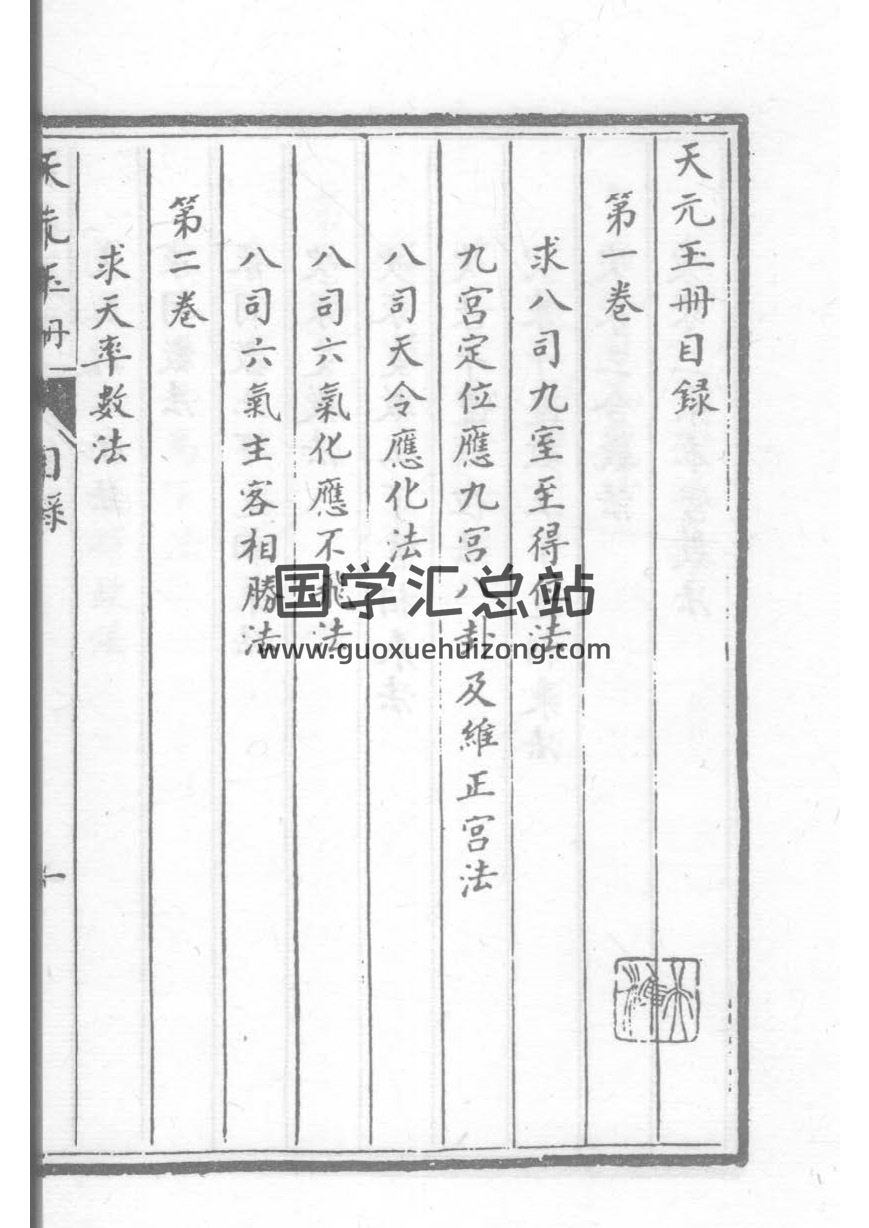 天元玉册目録
第一卷
求八司九室至得位法
九宫定位應九宫八卦及維正宫法
八司天令應化法
八司六氣化應不飛法
八司六氣主客相勝法
第二卷
求天率數法
天元玉册
目録
一
国学汇总站
www.guoxuehuizong.com